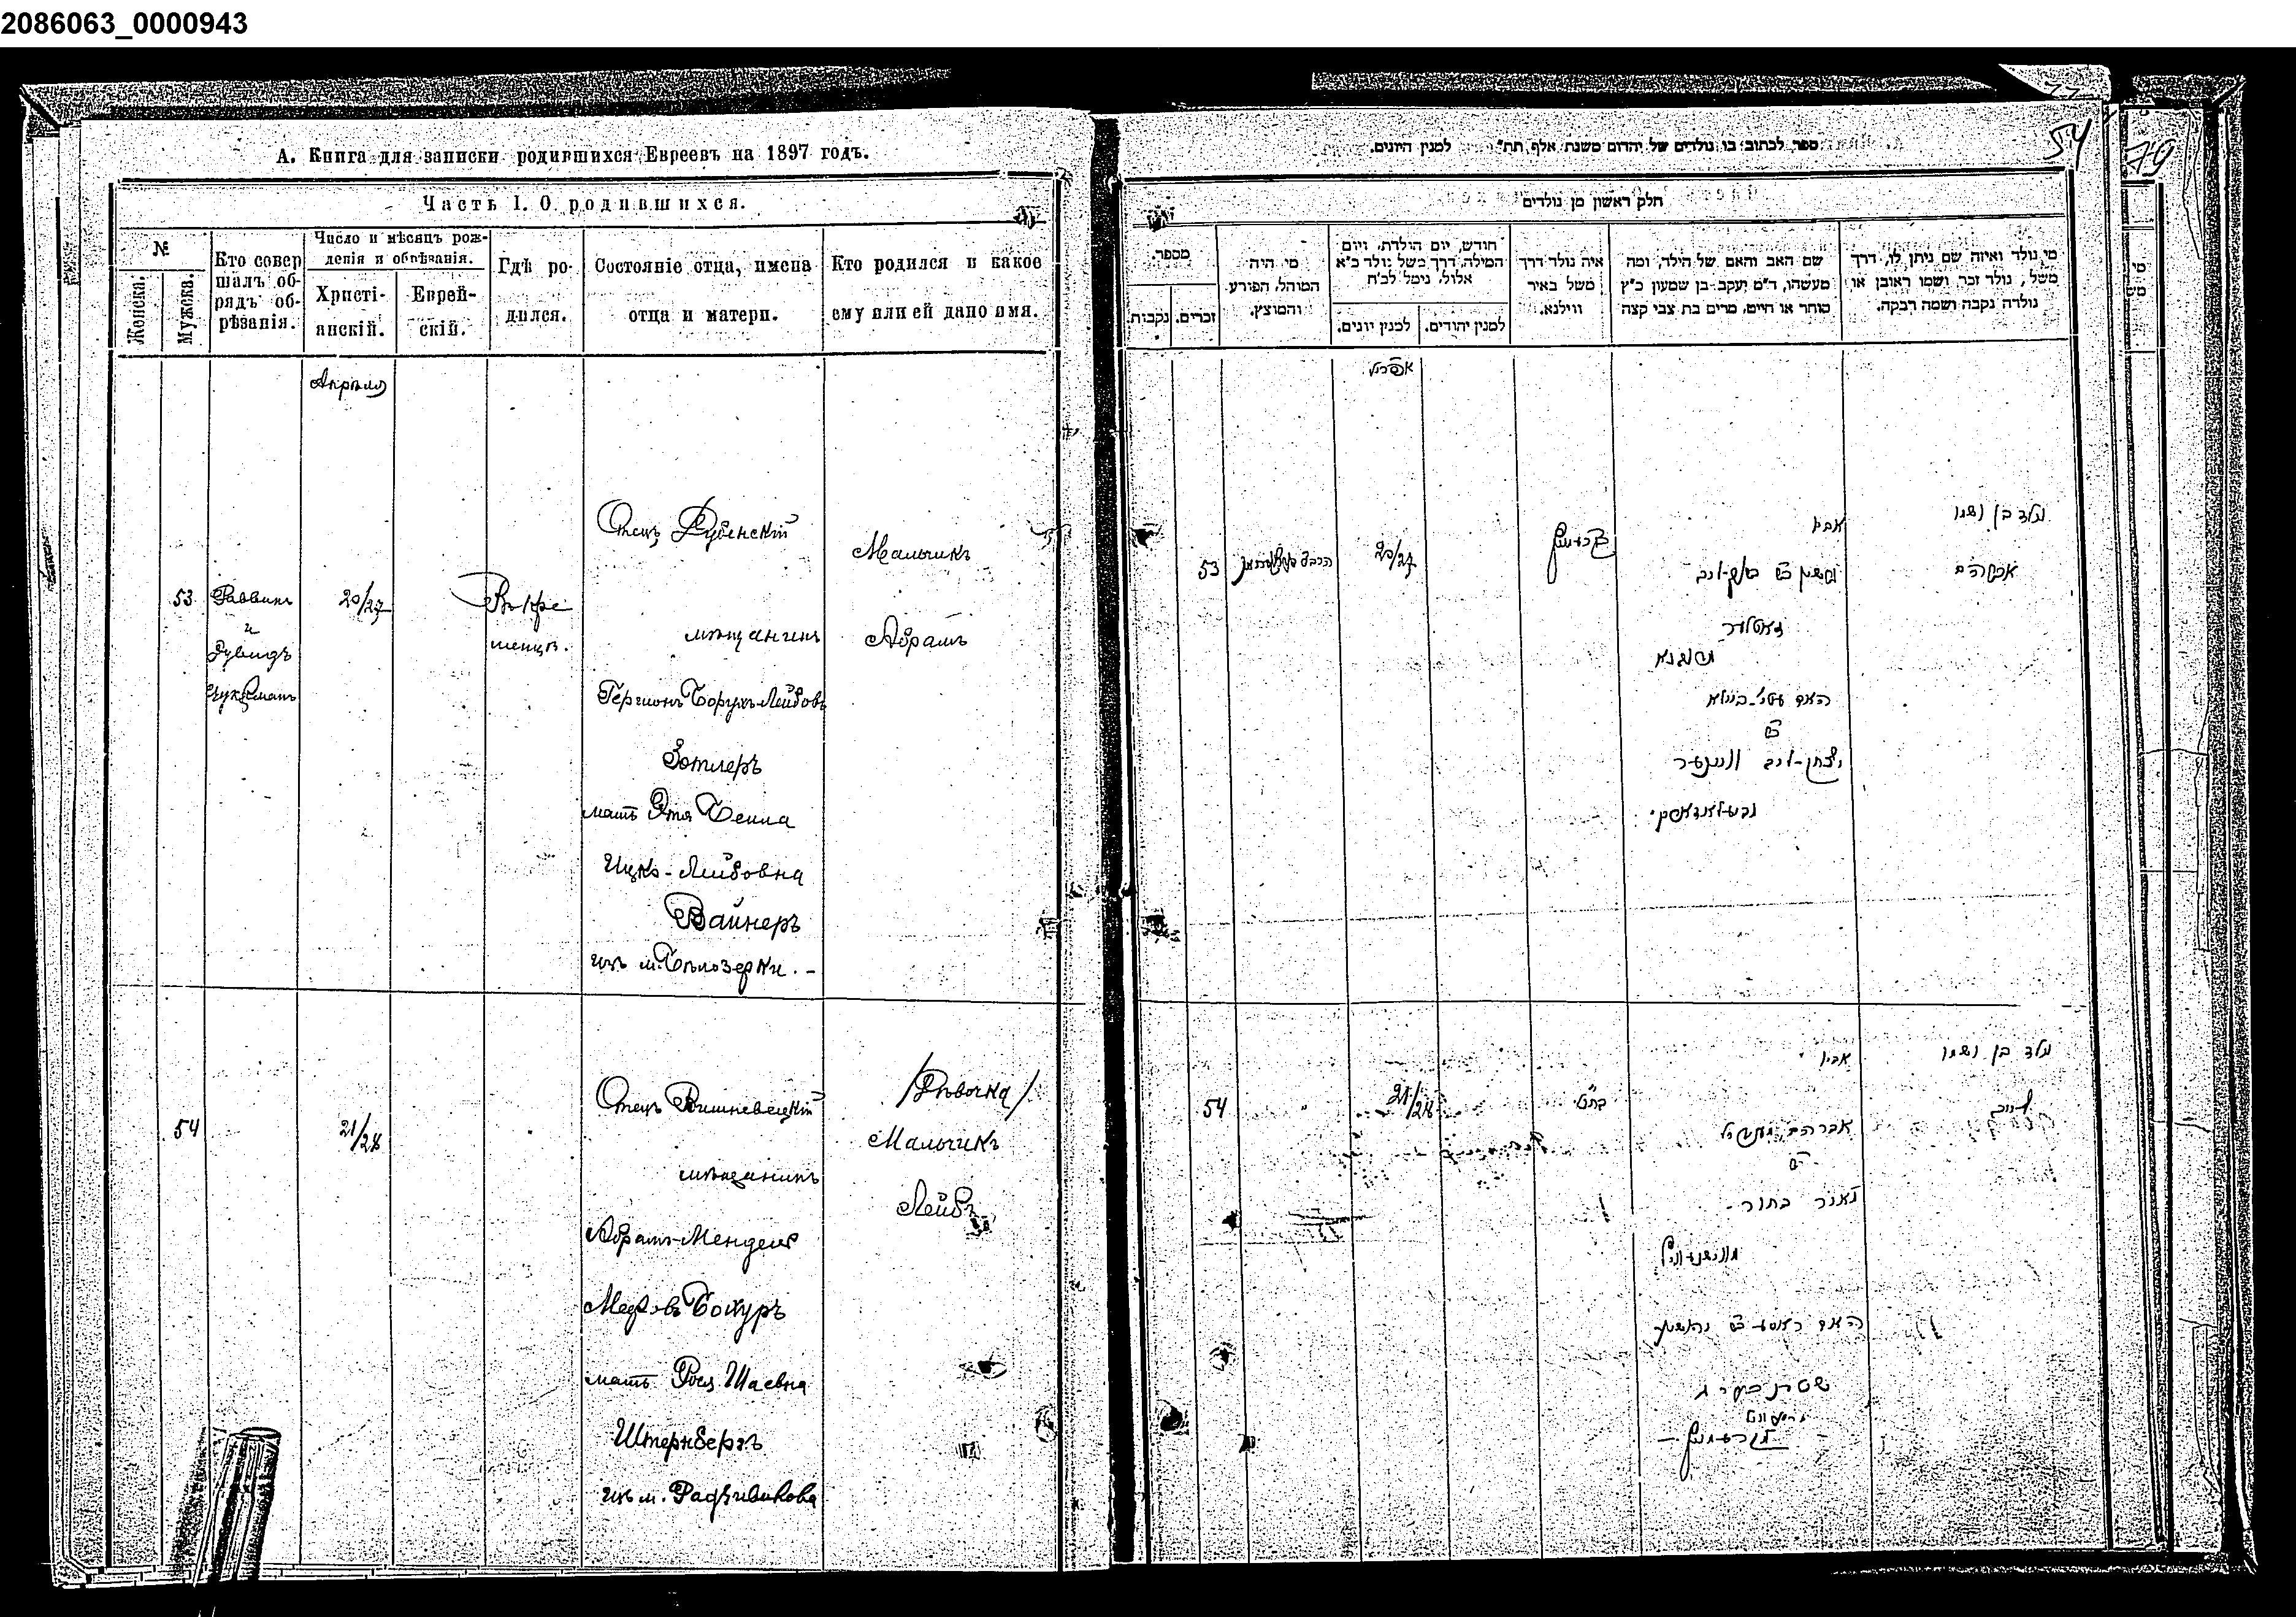 2086063_0000943
А. Книга для записки родившихся Евреевъ на 1897 годъ.
Часть I. О родившихся.
№
Женска.
Мужеска.
Кто совер
шалъ об-
рядъ об-
рѣзанія.
Число и мѣсяцъ рож-
денія и обрѣзанія.
Христі-
анскій.
Еврей-
скій.
Гдѣ ро-
дился.
Состояніе отца, имена
отца и матери.
Кто родился и какое
ему или ей дано имя.
Апрѣль
53
Раввинъ
и
20/27
Въ Кре
менцѣ.
Отецъ Дубенскій
мѣщанинъ
Гершонъ Борухъ-Лейбовъ
Зотлеръ
мать Этя Бейла
Ицко-Лейбовна
Вайнеръ
изъ м. Бѣлозерки.-
Мальчикъ
Абрамъ
54
21/28
Отецъ Вишневецкій
мѣщанинъ
Абрамъ-Мендель
Бохуръ
мать Рося Шаевна
Штернбергъ
изъ м. Радзивилова
/Дѣвочка/
Мальчикъ
Лейбъ
54
79
ספר לכתוב בו נולדים של יהדום משנת אלף תת" למנין היונים.
חלק ראשון מן נולדים
מספר.
נקבות
זכרים.
מי היה
המוהל, הפורע
והמוצץ.
חודש, יום הולדת, ויום
המילה, דרך משל נולד כ"א
אלול, נימל לכ"ח
למנין יונים.
למנין יהודים.
איה נולד דרך
משל באיר
ווילנא.
שם האב והאם של הילד, ומה
מעשהו, ד"מ יעקב בן שמעון כ"ץ
סוחר או חיים, מרים בת צבי קצה
מי נולד ואיזה שם ניתן לו, דרך
משל, נולד זכר ושמו ראובן או
נולדה נקבה ושמה רבקה.
אפריל
53
20/27
אביו
זאטלער
האם עטי-ביילא
יצחק-ליב וויינער
נולד בן ושמו
אברהם
54
21/28
אביו
אברהם מענדיל
מאיר בחור
שטרנבערג
נולד בן ושמו
לייב